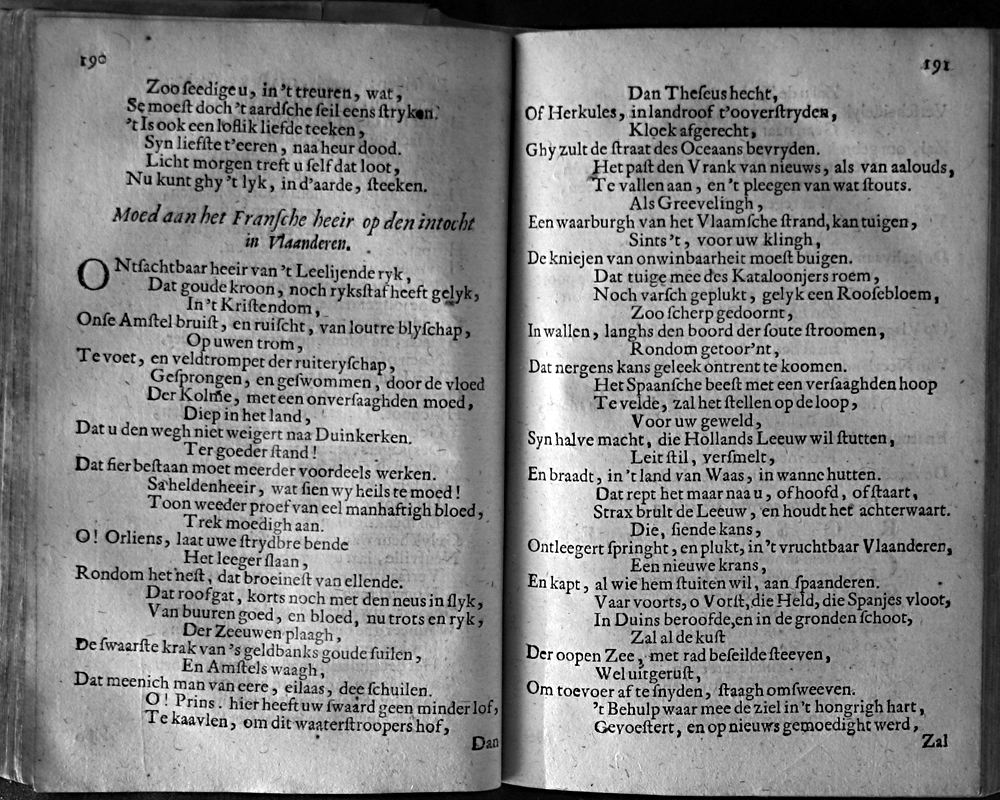 190
Zoo ſeedige u, in 't treuren, wat,
Se moeſt doch 't aardſche ſeil eens ſtryken.
't Is ook een loflik liefde teeken,
Syn liefſte t'eeren, naa heur dood.
Licht morgen treft u ſelf dat loot,
Nu kunt ghy 't lyk, in d'aarde, ſteeken.
Moed aan het Franſche heeir op den intocht
in Vlaanderen.
ONtſachtbaar heeir van 't Leelijende ryk,
Dat goude kroon, noch ryksſtaf heeft gelyk,
In 't Kriſtendom,
Onſe Amſtel bruiſt, en ruiſcht, van loutre blyſchap,
Op uwen trom,
Te voet, en veldtrompet der ruiteryſchap,
Geſprongen, en geſwommen, door de vloed
Der Kolme, met een onverſaaghden moed,
Diep in het land,
Dat u den wegh niet weigert naa Duinkerken.
Ter goeder ſtand!
Dat fier beſtaan moet meerder voordeels werken.
Sa heldenheeir, wat ſien wy heils te moed!
Toon weeder proef van eel manhaftigh bloed,
Trek moedigh aan.
O! Orliens, laat uwe ſtrydbre bende
Het leeger ſlaan,
Rondom het neſt, dat broeineſt van ellende.
Dat roofgat, korts noch met den neus in ſlyk,
Van buuren goed, en bloed, nu trots en ryk,
Der Zeeuwen plaagh,
De ſwaarſte krak van 's geldbanks goude ſuilen,
En Amſtels waagh,
Dat meenich man van eere, eilaas, dee ſchuilen.
O! Prins. hier heeft uw ſwaard geen minder lof,
Te kaavlen, om dit waaterſtroopers hof,
Dan
191
Dan Theſeus hecht,
Of Herkules, in landroof t'ooverſtryden,
Kloek afgerecht,
Ghy zult de ſtraat des Oceaans bevryden.
Het paſt den Vrank van nieuws, als van aalouds,
Te vallen aan, en 't pleegen van wat ſtouts.
Als Greevelingh,
Een waarburgh van het Vlaamſche ſtrand, kan tuigen,
Sints 't, voor uw klingh,
De kniejen van onwinbaarheit moeſt buigen.
Dat tuige mee des Kataloonjers roem,
Noch varſch geplukt, gelyk een Rooſebloem,
Zoo ſcherp gedoornt,
In wallen, langhs den boord der ſoute ſtroomen,
Rondom getoor'nt,
Dat nergens kans geleek ontrent te koomen.
Het Spaanſche beeſt met een verſaaghden hoop
Te velde, zal het ſtellen op de loop,
Voor uw geweld,
Syn halve macht, die Hollands Leeuw wil ſtutten,
Leit ſtil, verſmelt,
En braadt, in 't land van Waas, in wanne hutten.
Dat rept het maar naa u, of hoofd, of ſtaart,
Strax brult de Leeuw, en houdt het achterwaart.
Die, ſiende kans,
Ontleegert ſpringht, en plukt, in 't vruchtbaar Vlaanderen,
Een nieuwe krans,
En kapt, al wie hem ſtuiten wil, aan ſpaanderen.
Vaar voorts, o Vorſt, die Held, die Spanjes vloot,
In Duins beroofde, en in de gronden ſchoot,
Zal al de kuſt
Der oopen Zee, met rad beſeilde ſteeven,
Wel uitgeruſt,
Om toevoer af te ſnyden, ſtaagh omſweeven.
't Behulp waar mee de ziel in 't hongrigh hart,
Gevoeſtert, en op nieuws gemoedight werd,
Zal